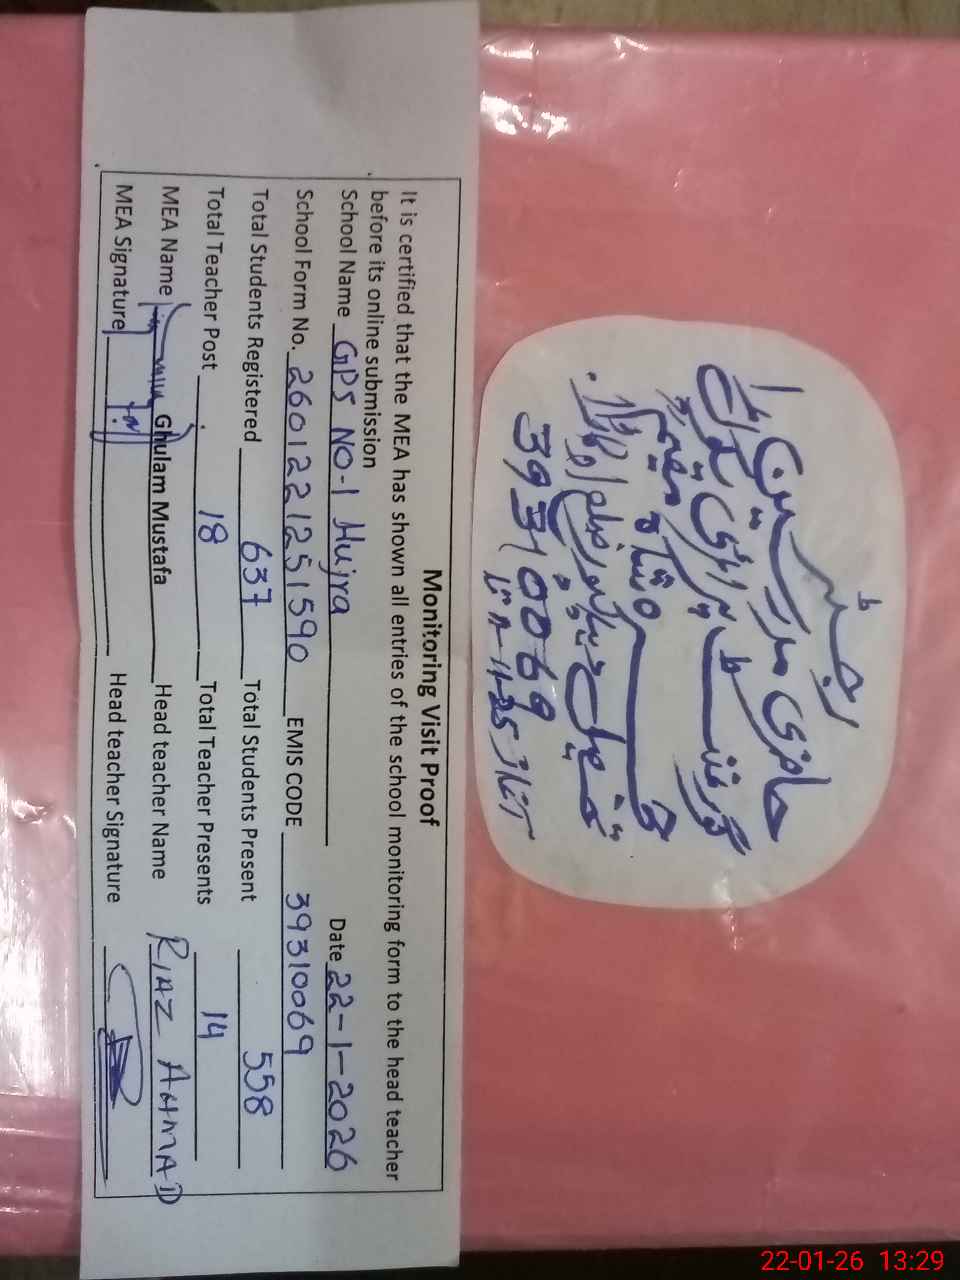 رجسٹر
حاضری مدرسین
گورنمنٹ پرائمری سکول
نمبر
39310069
Monitoring Visit Proof
It is certified that the MEA has shown all entries of the school monitoring form to the head teacher
before its online submission
School Name GPS NO-1 Hujra Date 22-1-2026
School Form No. 260122125 1590 EMIS CODE 39310069
Total Students Registered 637 Total Students Present 558
Total Teacher Post 18 Total Teacher Presents 14
MEA Name Ghulam Mustafa Head teacher Name RIAZ AHMAD
MEA Signature Head teacher Signature
22-01-26 13:29